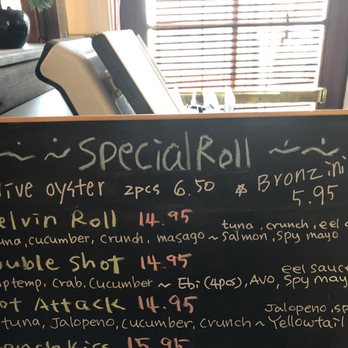 ~ ~ Special Roll ~ ~
live oyster 2pcs 6.50 * Bronzini
5.95
elvin Roll 14.95 tuna, crunch, eel
una, cucumber, crunch, masago ~ Salmon, spy mayo
ouble Shot 14.95 eel sauce
ptemp, Crab. Cucumber ~ Ebi (4pcs), AVO, Spy may
ot Attack 14.95 Jalopeno, sp
tuna, Jalopeno, cucumber, crunch ~ Yellowtail
15.95